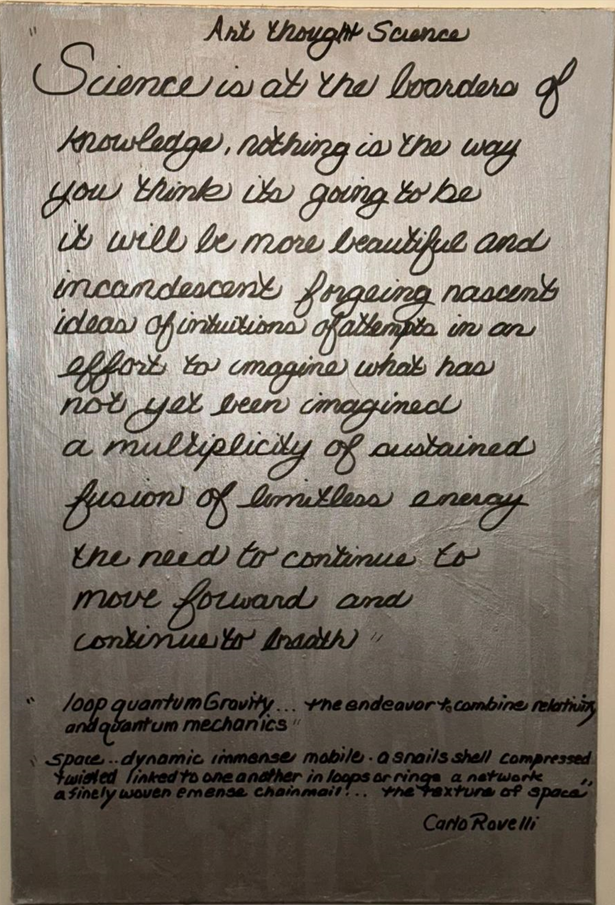 " Art thought Science
Science is at the boarders of
knowledge, nothing is the way
you think its going to be
it will be more beautiful and
incandescent forgeing nascent
ideas of intuitions of attempts in an
effort to imagine what has
not yet been imagined
a multiplicity of sustained
fusion of limitless energy
the need to continue to
move forward and
continue to breath "
" loop quantum Gravity... the endeavor to combine relativity
and quantum mechanics "
" space... dynamic immense mobile. a snails shell compressed
twisted linked to one another in loops or rings a network
a finely woven emense chainmail!... the texture of space "
Carlo Rovelli